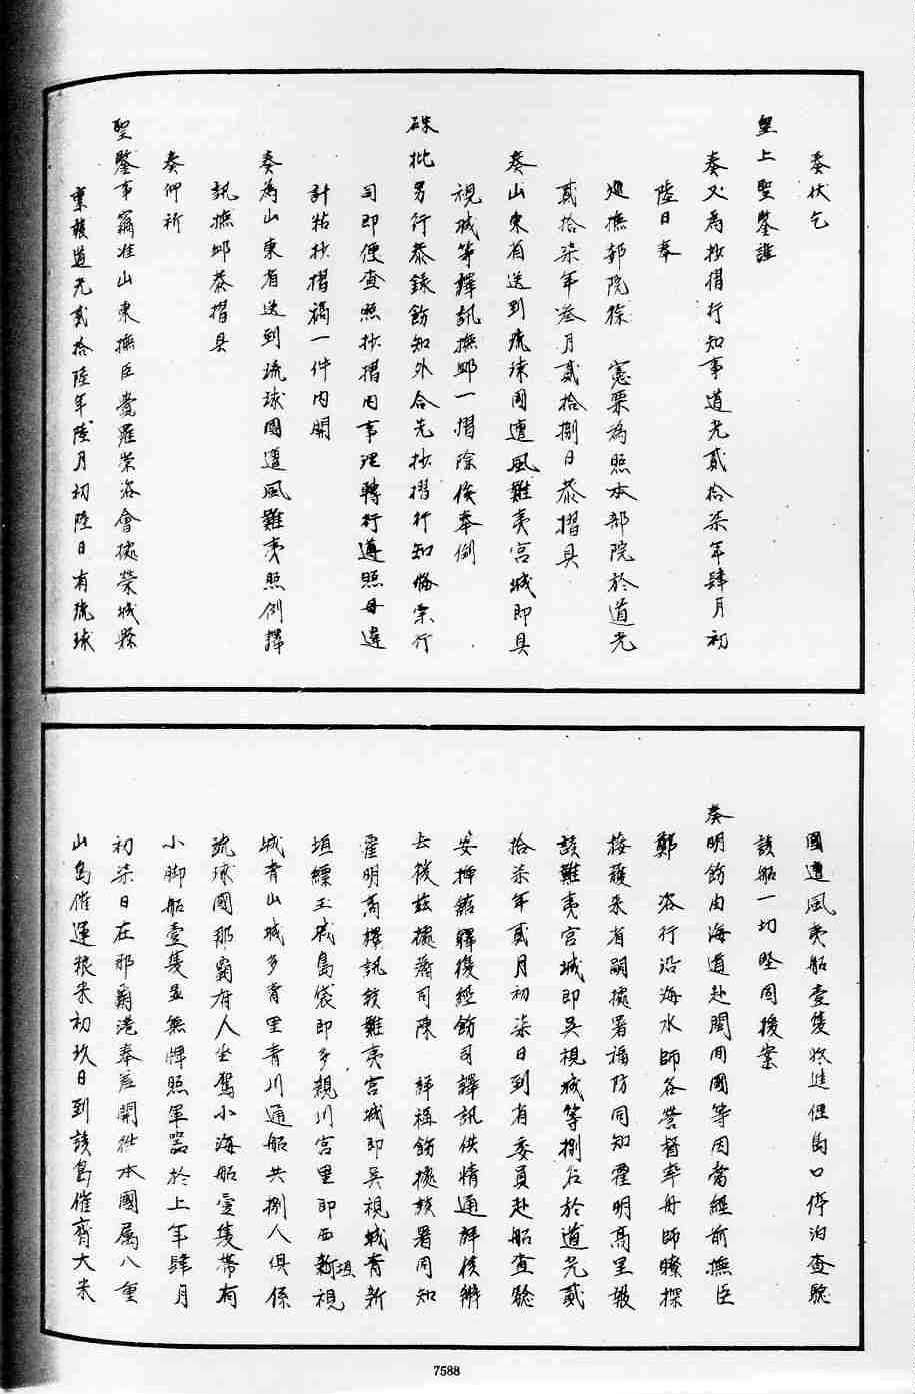 奏伏乞
皇上聖鑒謹
奏又為抄摺行知事道光貳拾柒年肆月初
陸日奉
巡撫部院徐　憲票為照本部院於道光
貳拾柒年叁月貳拾捌日恭摺具
奏山東省送到琉球國遭風難夷宮城即具
視城等譯訊撫卹一摺除俟奉到
硃批另行恭錄飭知外合先抄摺行知備票行
司即便查照抄摺內事理轉行遵照毋違
計粘抄摺稿一件內開
奏為山東省送到琉球國遭風難夷照例譯
訊撫卹恭摺具
奏仰祈
聖鑒事竊准山東撫臣覺羅崇洛會據榮城縣
稟報道光貳拾陸年陸月初陸日有琉球
國遭風夷船壹隻漂進俚島口停泊查驗
該船一切堅固援案
奏明飭由海道赴閩回國等因當經前撫臣
鄭　洛行沿海水師各營督率舟師瞭探
接護來省嗣據署福防同知霍明高呈報
該難夷宮城即吳視城等捌名於道光貳
拾柒年貳月初柒日到省委員赴船查驗
安插館驛後經飭司譯訊供情通詳核辦
去後茲據藩司陳　詳稱飭據該署同知
霍明高譯訊該難夷宮城即吳視城青新
垣縹玉城島袋即多親川宮里即西新垣視
城青山城多青里青川通船共捌人俱係
琉球國那霸府人坐駕小海船壹隻帶有
小腳船壹隻並無牌照軍器於上年肆月
初柒日在那霸港奉差開往本國屬八重
山島催運糧米初玖日到該島催齊大米
7588